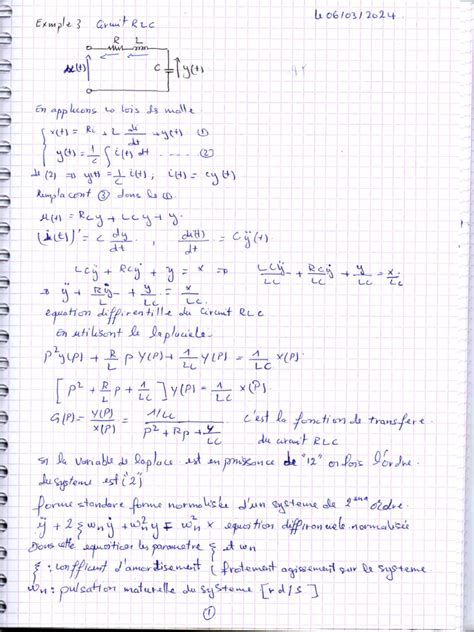 le 06/03/2024
Exmple 3 Circuit RLC
R L
x(t) C y(t)
En applicons lois de malle
{ x(t) = Ri + L di/dt + y(t) ①
y(t) = 1/C ∫ i(t) dt ..... (2)
de (2) ⇒ ẏ(t) = 1/C i(t), i(t) = cẏ(t)
Remplacont ③ dans le ①
x(t) = RCẏ + LCÿ + y.
(i(t))' = C dy/dt , di(t)/dt = Cÿ(t)
LCÿ + RCẏ + y = x ⇒ LCÿ/LC + RCẏ/LC + y/LC = x/LC
⇒ ÿ + Rẏ/L + y/LC = x/LC
equation differentille du circuit RLC
En utilisont le laplaciele
P²y(P) + R/L P Y(P) + 1/LC Y(P) = 1/LC X(P)
[P² + R/L P + 1/LC] Y(P) = 1/LC X(P)
G(P) = Y(P)/X(P) = (1/LC)/(P² + Rp/L + 1/LC) c'est la fonction de transfere
du circuit RLC
si la variable de laplace est en puissance de "12" orlois l'ordre
du systeme est "2"
forme standare forme normalisée d'un systeme de 2eme ordre
ÿ + 2ξwnẏ + w²ny = w²n x equation differentielle normalisée
Dans cette equation les parametre ξ et wn
ξ : coefficient d'amordisement (frotement agissement sur le systeme
wn : pulsation naturelle du systeme [rd/s]
①